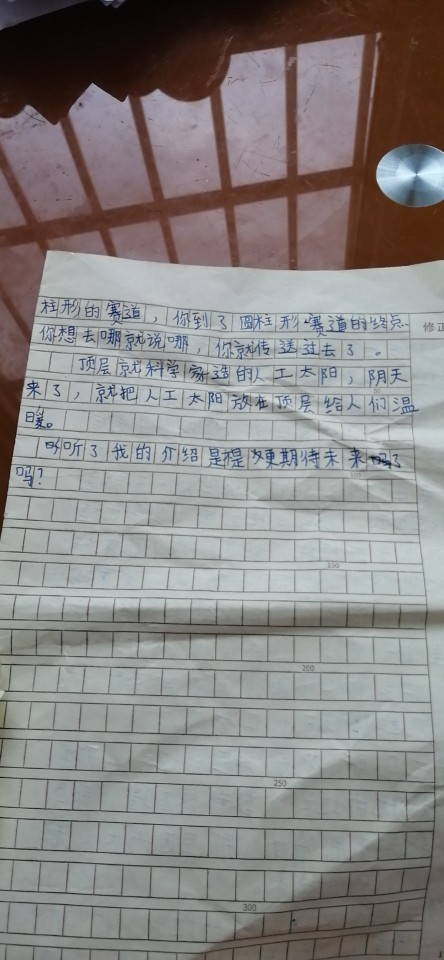 柱形的赛道，你到了圆柱形赛道的终点
修正
你想去哪就说哪，你就传送过去了。
顶层就科学家造的人工太阳，阴天
来了，就把人工太阳放在顶层给人们温
暖。
听了我的介绍是很期待未来吗了
吗？
150
200
250
300